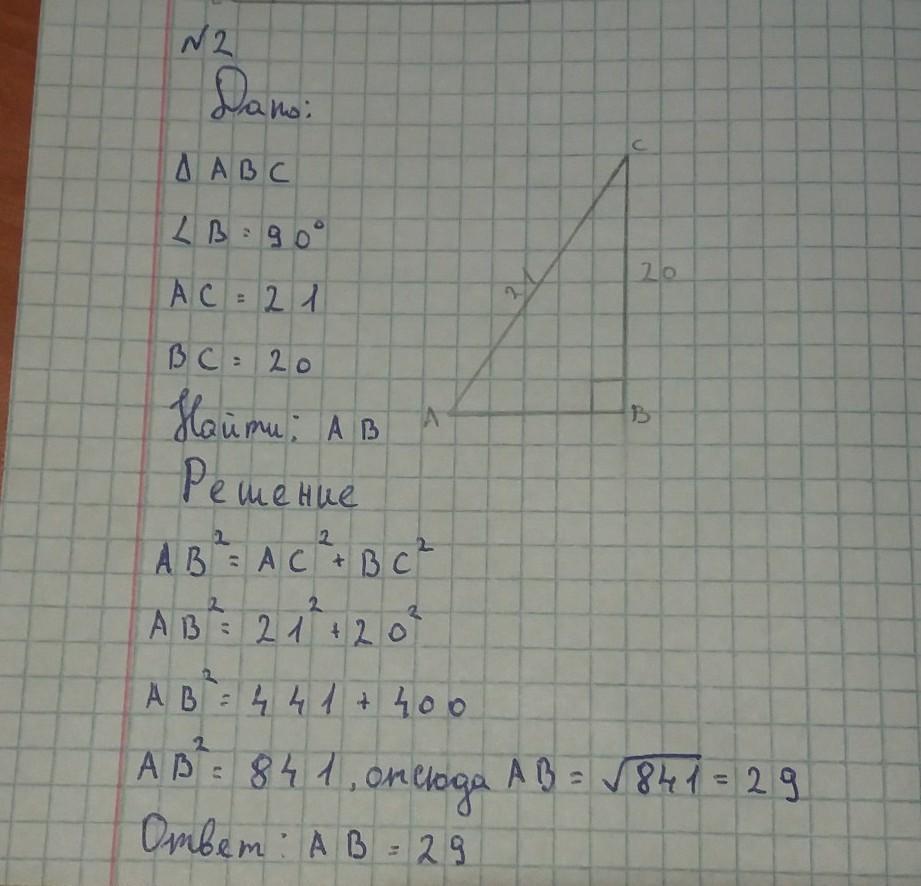 N2
Дано:
Δ ABC
∠B = 90°
AC = 21
BC = 20
Найти: AB
Решение
AB² = AC² + BC²
AB² = 21² + 20²
AB² = 441 + 400
AB² = 841, отсюда AB = √841 = 29
Ответ: AB = 29
C
21
20
A
B